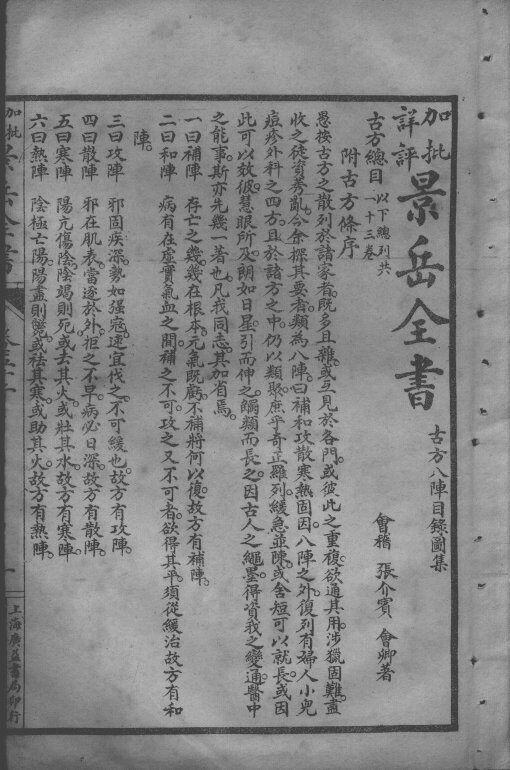 加批
詳評
景岳全書
古方八陣目錄圖集
會稽 張介賓 會卿著
古方總目 以下總列共
一十三卷
附古方條序
愚按古方之散列於諸家者既多且雜或互見於各門或彼此之重複欲通其用涉獵固難盡
收之徒資莠亂今余採其要者類為八陣曰補和攻散寒熱固因八陣之外復列有婦人小兒
痘疹外科之四方且於諸方之中仍以類聚庶乎奇正雖列緩急並陳或舍短可以就長或因
此可以效彼慧眼所及朗如日星引而伸之觸類而長之因古人之繩墨得資我之變通醫中
之能事斯亦先幾一著也凡我同志其加省焉
一曰補陣 存亡之幾幾在根本元氣既虧不補將何以復故方有補陣
二曰和陣 病有在虛實氣血之間補之不可攻之又不可者欲得其平須從緩治故方有和
陣
三曰攻陣 邪固疾深勢如强寇速宜伐之不可緩也故方有攻陣
四曰散陣 邪在肌表當逐於外拒之不早病必日深故方有散陣
五曰寒陣 陽亢傷陰陰竭則死或去其火或壯其水故方有寒陣
六曰熱陣 陰極亡陽陽盡則斃或祛其寒或助其火故方有熱陣
加批 景岳全書
一
上海廣益書局印行